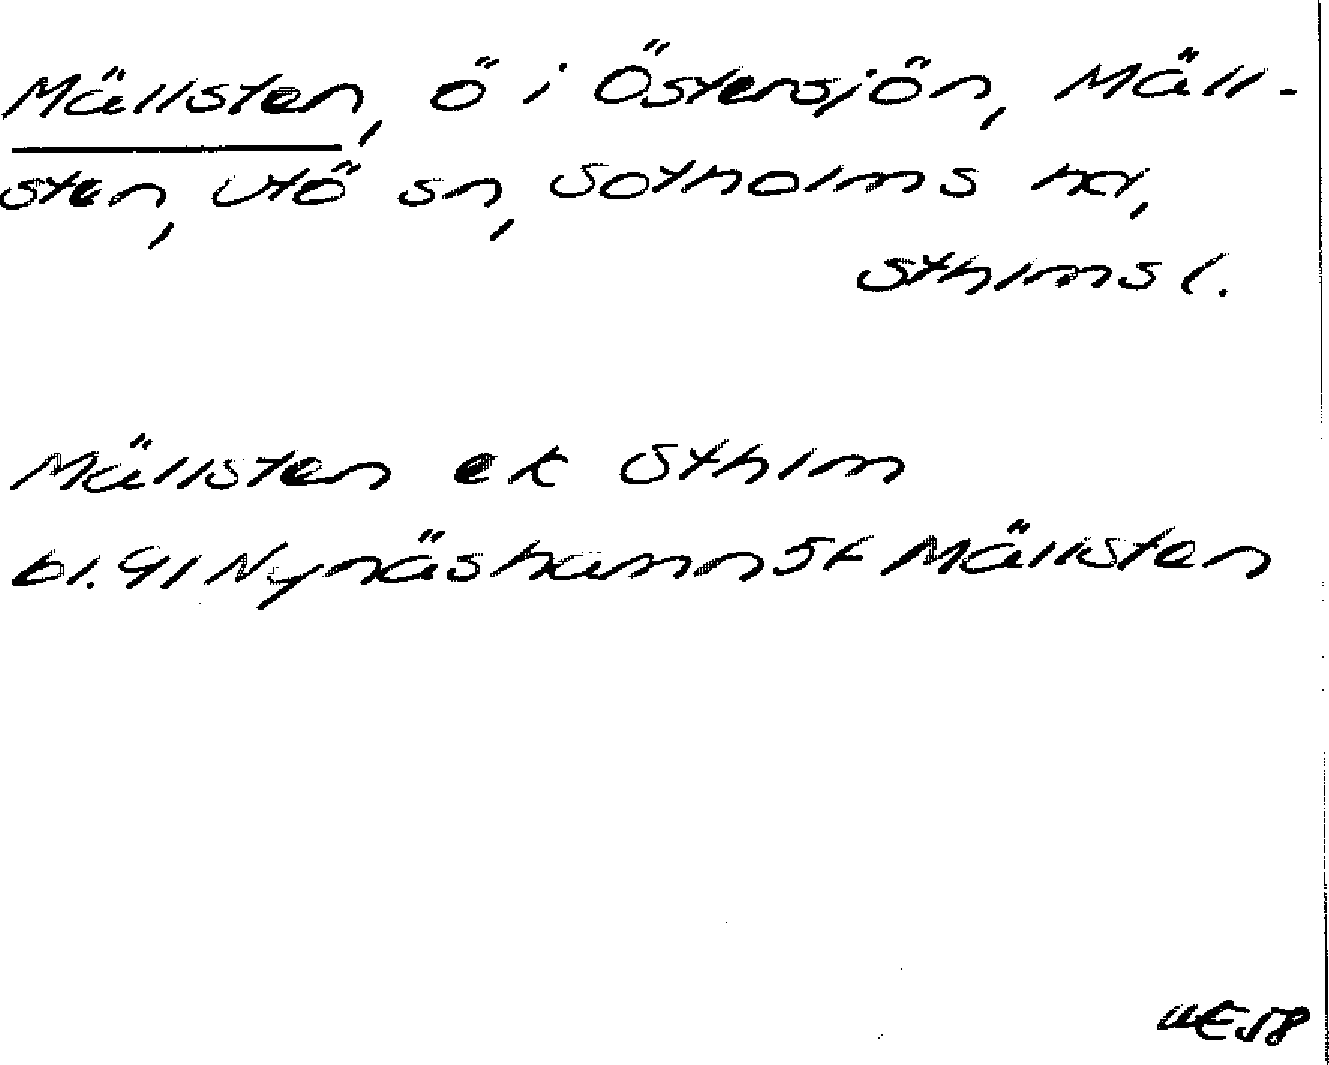 Mällsten, ö i Östersjön, Mäll-
sten, Utö sn, Sotholms hd,
Sthlms l.
Mällsten ek Sthlm
bl. 91 Nynäshamn 5f Mällsten